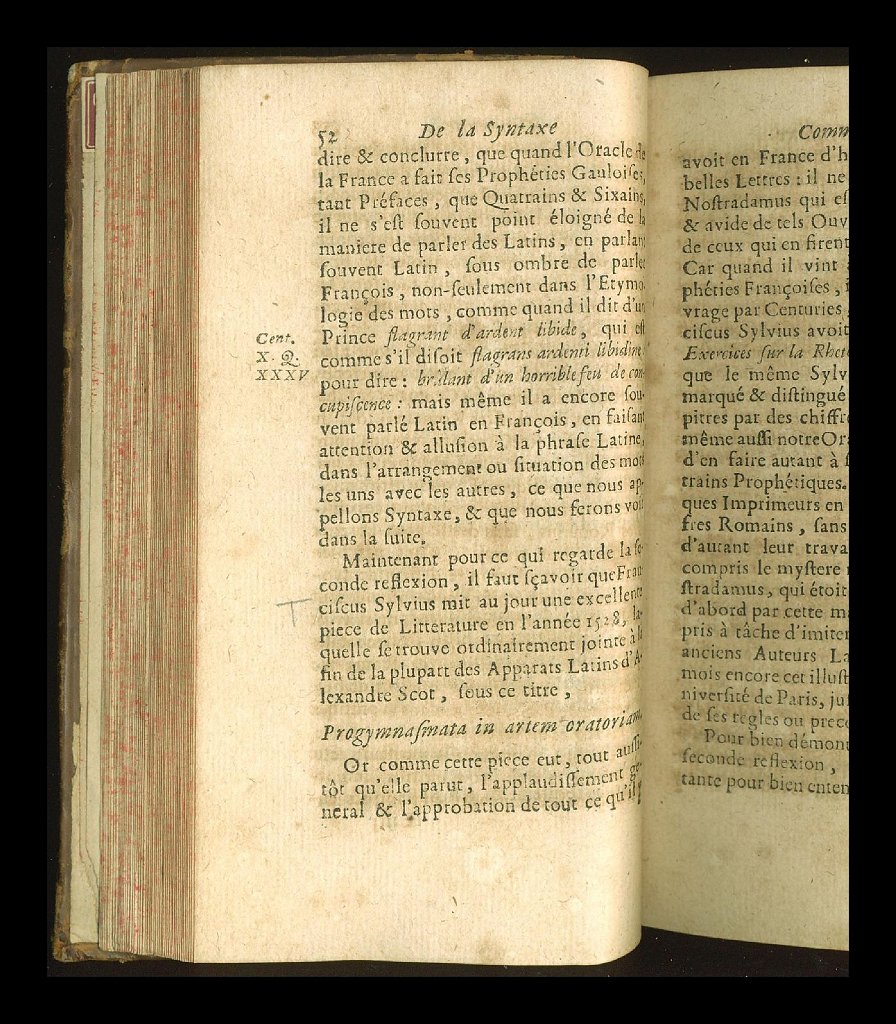 52 De la Syntaxe
dire & conclurre, que quand l'Oracle de
la France a fait ſes Prophéties Gauloiſes,
tant Préfaces, que Quatrains & Sixains,
il ne s'eſt ſouvent point éloigné de la
maniere de parler des Latins, en parlant
ſouvent Latin, ſous ombre de parler
François, non-ſeulement dans l'Etymo
logie des mots, comme quand il dit d'un
Prince flagrant d'ardent libide, qui eſt
comme s'il diſoit flagrans ardenti libidine:
pour dire: brûlant d'un horrible feu de con
cupiſcence: mais même il a encore ſou
vent parlé Latin en François, en faiſant
attention & alluſion à la phraſe Latine,
dans l'arrangement ou ſituation des mots
les uns avec les autres, ce que nous ap
pellons Syntaxe, & que nous ferons voir
dans la ſuite.
Cent.
X. Q.
XXXV
Maintenant pour ce qui regarde la ſe
conde reflexion, il faut ſçavoir que Fran
ciſcus Sylvius mit au jour une excellente
piece de Litterature en l'année 1528, la
quelle ſe trouve ordinairement jointe à la
fin de la plupart des Apparats Latins d'A
lexandre Scot, ſous ce titre,
Progymnaſmata in artem oratoriam.
Or comme cette piece eut, tout auſſi
tôt qu'elle parut, l'applaudiſſement gé
neral & l'approbation de tout ce qu'il y
Comm
avoit en France d'h
belles Lettres: il ne
Noſtradamus qui eſ
& avide de tels Ouv
de ceux qui en firent
Car quand il vint
phéties Françoiſes,
vrage par Centuries
ciſcus Sylvius avoit
Exercices ſur la Rhet
que le même Sylv
marqué & diſtingué
pitres par des chiffr
même auſſi notre Or
d'en faire autant à ſ
trains Prophétiques.
ques Imprimeurs en
fres Romains, ſans
d'autant leur trava
compris le myſtere
ſtradamus, qui étoit
d'abord par cette m
pris à tâche d'imiter
anciens Auteurs La
mois encore cet illuſt
niverſité de Paris, ju
de ſes regles ou prec
Pour bien démont
ſeconde reflexion,
tante pour bien enten